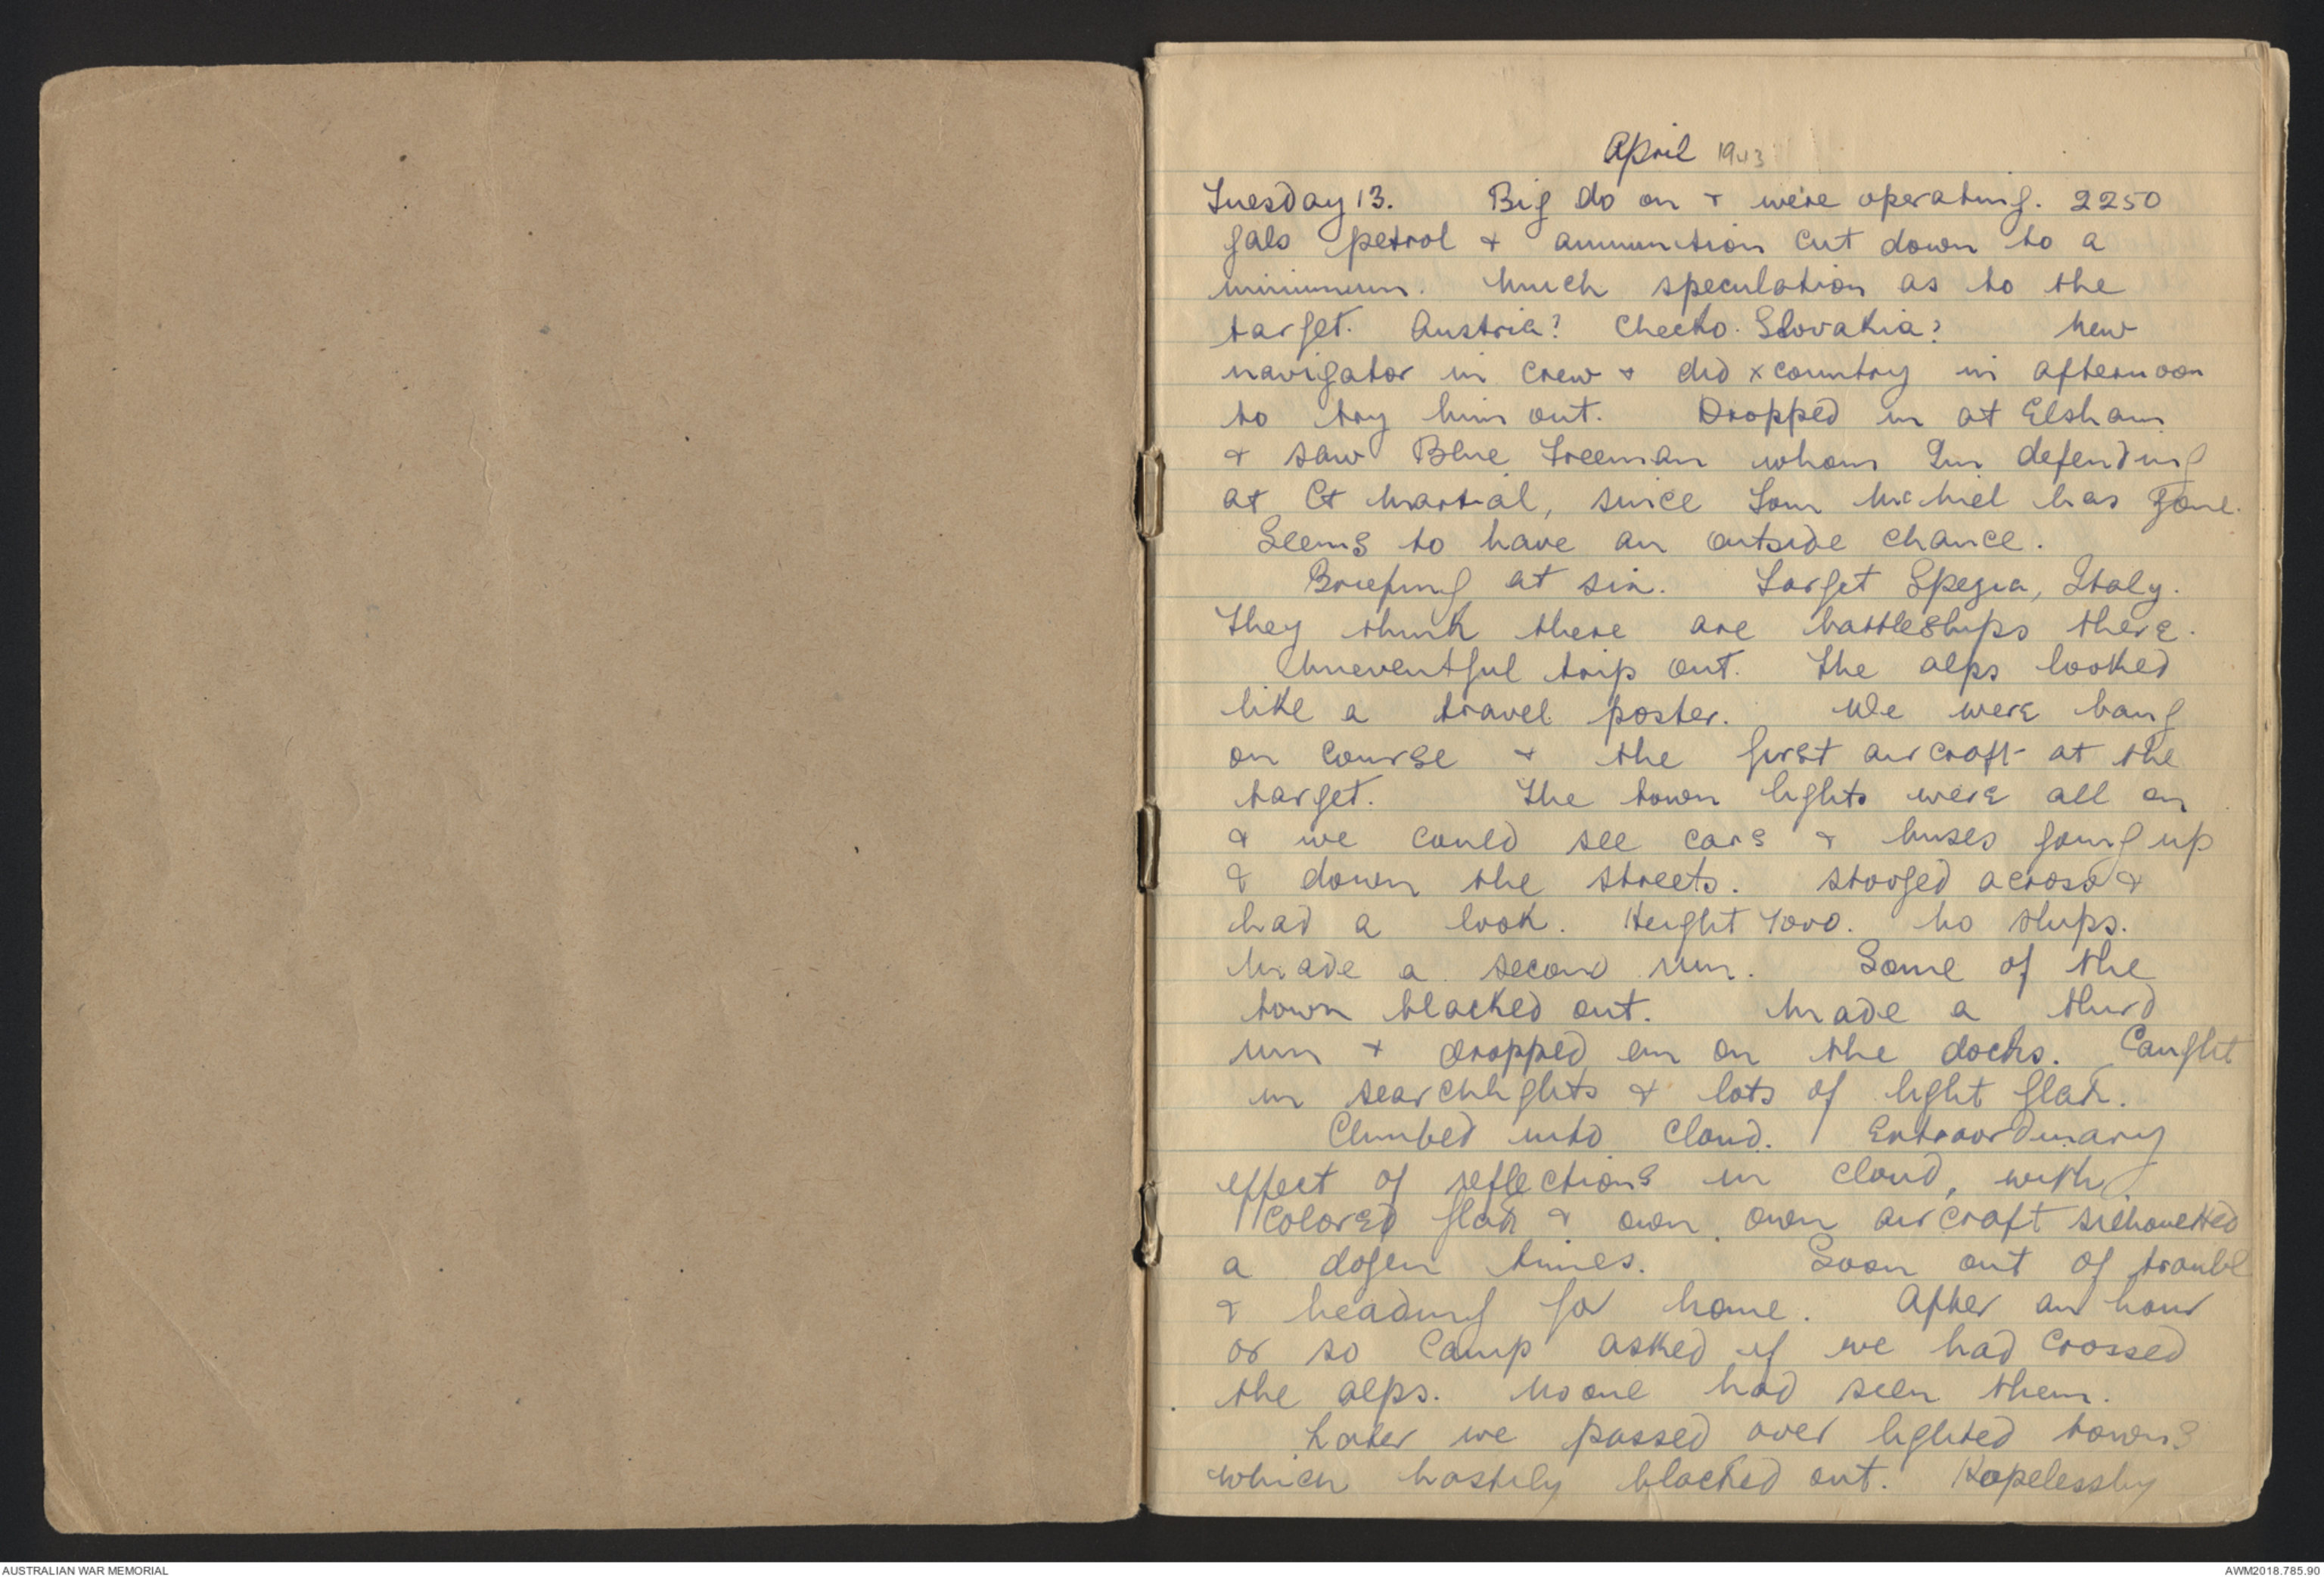 April 1943
Tuesday 13. Big do on & we're operating. 2250
gals petrol & ammunition cut down to a
minimum. Much speculation as to the
target. Austria? Checko. Slovakia? New
navigator in crew & did xcountry in afternoon
to try him out. Dropped in at Elsham
& saw Blue Freeman whom I'm defending
at Ct Martial, since Tom McNiel has gone.
Seems to have an outside chance.
Briefing at six. Target Spezia, Italy.
They think there are battleships there.
Uneventful trip out. The alps looked
like a travel poster. We were bang
on course & the first aircraft at the
target. The town lights were all on
& we could see cars & buses going up
& down the streets. Stooged across &
had a look. Height 7000. No ships.
Made a second run. Some of the
town blacked out. Made a third
run & dropped em on the docks. Caught
in searchlights & lots of light flak.
Climbed into cloud. Extraordinary
effect of reflections in cloud, with
colored flak & own own aircraft silhouetted
a dozen times. Soon out of troubl
& heading for home. After an hour
or so Camp asked if we had crossed
the alps. No one had seen them.
Later we passed over lighted towns
which hastily blacked out. Hopelessly
AUSTRALIAN WAR MEMORIAL
AWM2018.785.90